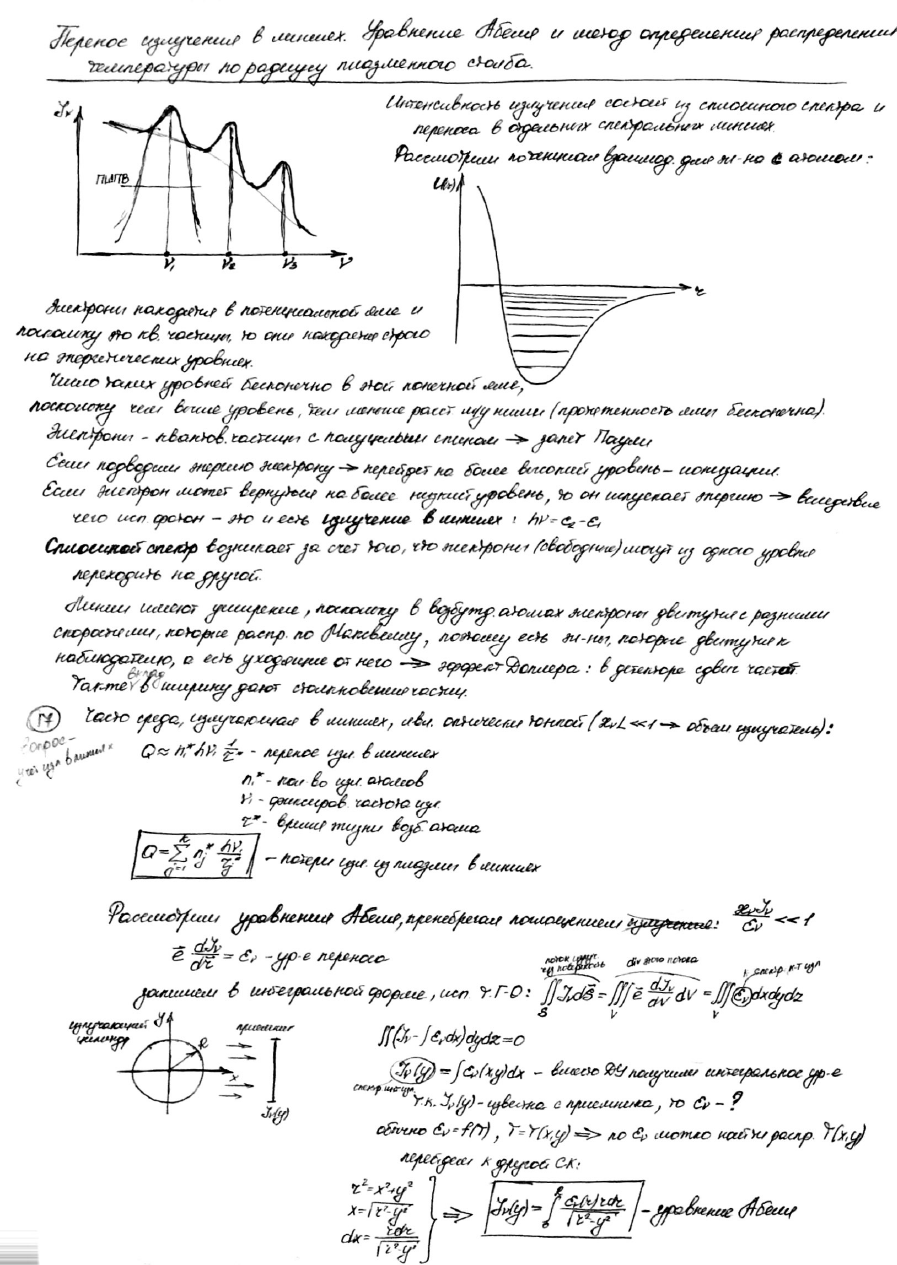 Перенос излучения в линиях. Уравнение Абеля и метод определения распределения
температуры по радиусу плазменного столба.
Jν
ПШПВ
ν₁ ν₂ ν₃ ν
Интенсивность излучения состоит из сплошного спектра и
переноса в отдельных спектральных линиях.
Рассмотрим потенциал взаимод. для эл-на с атомом:
U(r)
r
Электроны находятся в потенциальной яме и
поскольку это кв. частицы, то они находятся строго
на энергетических уровнях.
Число таких уровней бесконечно в этой конечной яме,
поскольку чем выше уровень, тем меньше расст. м/у ними (протяженность ямы бесконечна).
Электроны - квантов. частицы с полуцелым спином → запрет Паули
Если подводим энергию электрону → перейдет на более высокий уровень - ионизация.
Если электрон может вернуться на более низкий уровень, то он испускает энергию → вследствие
чего исп. фотон - это и есть излучение в линиях: hν = ε₂ - ε₁
Сплошной спектр возникает за счет того, что электроны (свободные) могут из одного уровня
переходить на другой.
Линии имеют уширение, поскольку в возбужд. атомах электроны движутся с разными
скоростями, которые распр. по Максвеллу, поэтому есть эл-ны, которые движутся к
наблюдателю, а есть уходящие от него → эффект Доплера: в детекторе сдвиг частот.
Также вклад в ширину дают столкновения частиц.
17
Вопрос -
учет изл в линиях
Часто среда, излучающая в линиях, явл. оптически тонкой (æνL << 1 → объем. излучатель):
Q ≈ nᵢ* hνᵢ 1/τ* - перенос изл. в линиях
nᵢ* - кол-во изл. атомов
νᵢ - фиксиров. частота изл.
τ* - время жизни возб. атома
Q = Σ_{j=1}^{k} nj* hνj/τj* - потери изл. из плазмы в линиях
Рассмотрим уравнения Абеля, пренебрегая поглощением излучения: æνJν/εν << 1
e⃗ dJν/dr⃗ = εν - ур-е переноса
поток излуч. ч/з поверхность
div этого потока
к. спектр. к-т изл
запишем в интегральной форме, исп. т. Г-О: ∬_S Jν dS⃗ = ∭_V e⃗ dJν/dV dV = ∭_V εν dxdydz
излучающий
цилиндр
y
R
x
приемник
Jν(y)
∬(Jν - ∫ενdx)dydz = 0
Jν(y) = ∫εν(xy)dx - вместо ДУ получили интегральное ур-е
т.к. Jν(y) - известна с приемника, то εν - ?
обычно εν = f(T), T = T(x,y) ⇒ по εν можно найти распр. T(x,y)
перейдем к другой СК:
r² = x² + y²
x = √(r² - y²)
dx = rdr/√(r² - y²)
⇒ Jν(y) = ∫₀^R εν(r)rdr/√(r² - y²) - уравнение Абеля